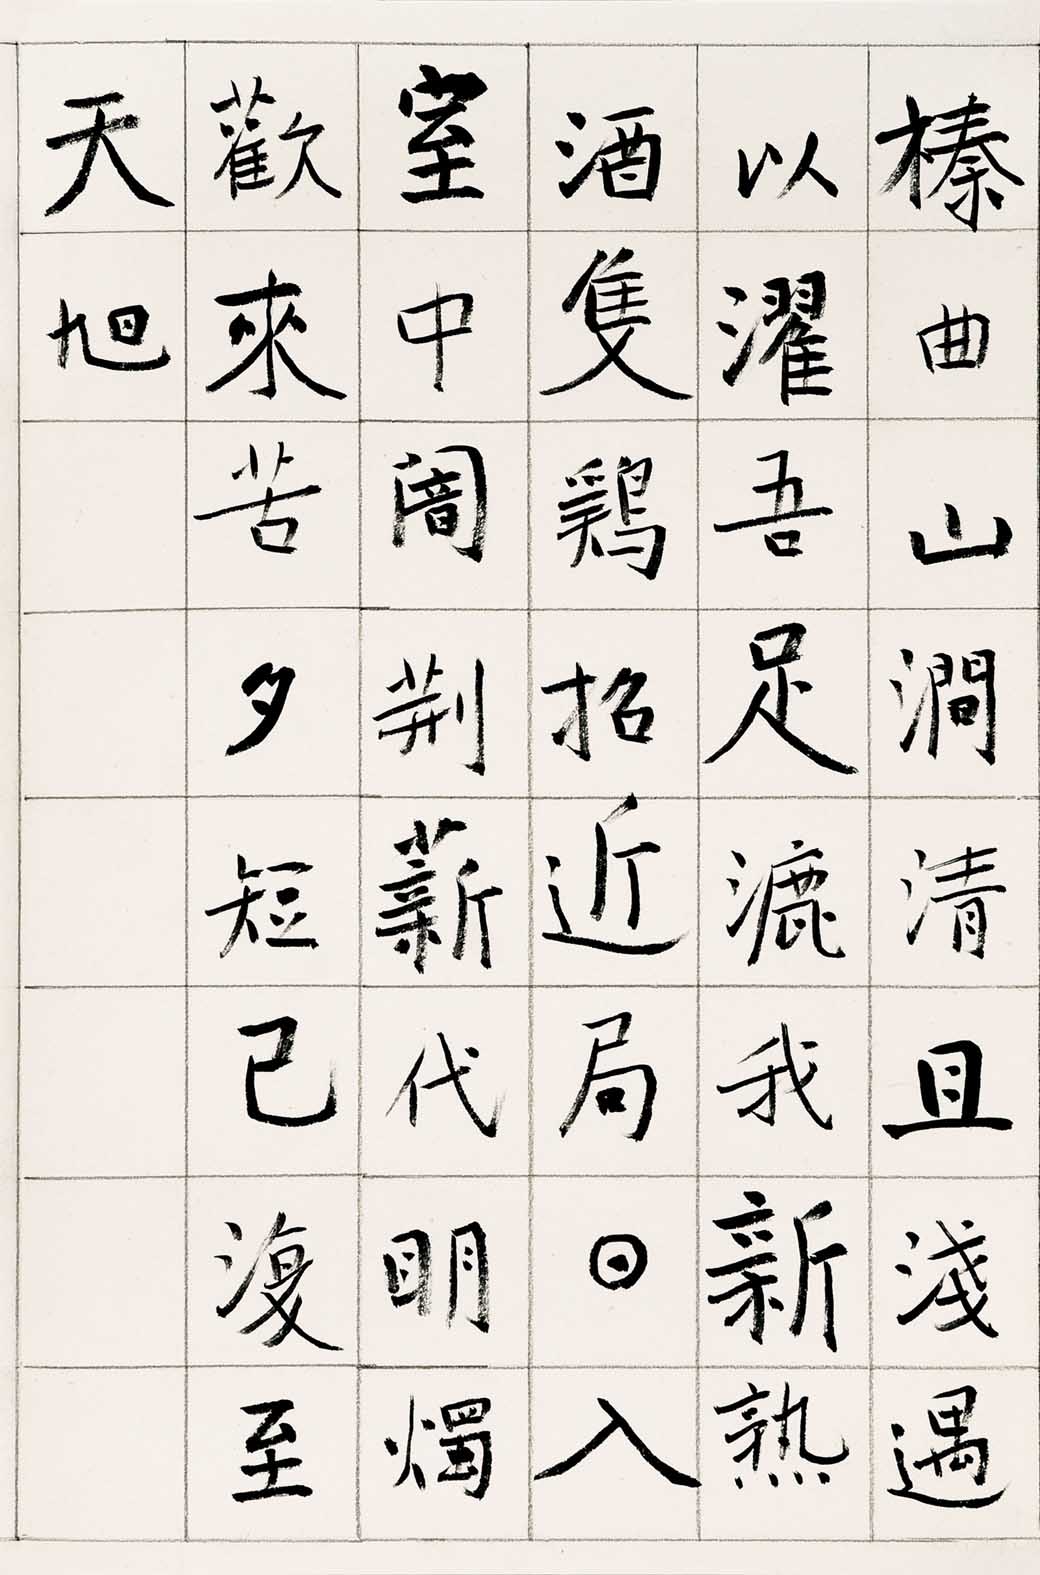 榛曲山澗清且淺遇
以濯吾足漉我新熟
酒隻鷄招近局日入
室中闇荆薪代明燭
歡來苦夕短已復至
天旭